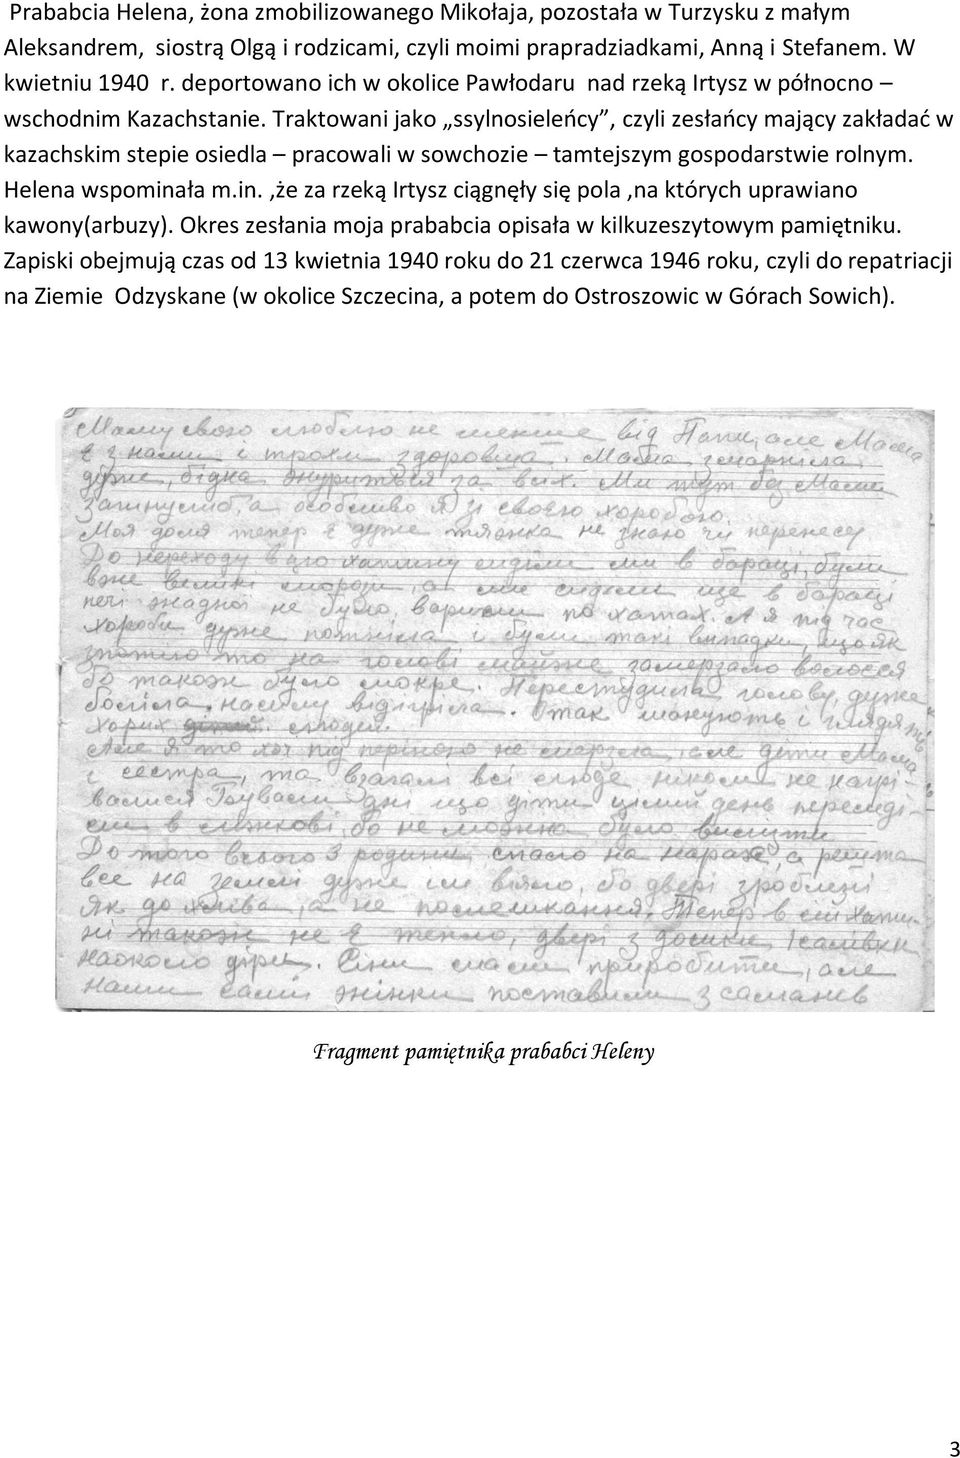 Prababcia Helena, żona zmobilizowanego Mikołaja, pozostała w Turzysku z małym
Aleksandrem, siostrą Olgą i rodzicami, czyli moimi prapradziadkami, Anną i Stefanem. W
kwietniu 1940 r. deportowano ich w okolice Pawłodaru nad rzeką Irtysz w północno –
wschodnim Kazachstanie. Traktowani jako „ssylnosieleńcy”, czyli zesłańcy mający zakładać w
kazachskim stepie osiedla – pracowali w sowchozie – tamtejszym gospodarstwie rolnym.
Helena wspominała m.in. ,że za rzeką Irtysz ciągnęły się pola ,na których uprawiano
kawony(arbuzy). Okres zesłania moja prababcia opisała w kilkuzeszytowym pamiętniku.
Zapiski obejmują czas od 13 kwietnia 1940 roku do 21 czerwca 1946 roku, czyli do repatriacji
na Ziemie Odzyskane (w okolice Szczecina, a potem do Ostroszowic w Górach Sowich).
Маму свою люблю не менше від Папи, але Мама
є з нами і трохи здоровша. Мама змарніла
дуже, бідна журиться за всіх. Ми тут без Мами
загинулиб, а особливо я зі своєю хоробою.
Моя доля тепер є дуже тяжка не знаю чи перенесу
До переходу в цю хатину сиділи ми в бараці, були
вже великі морози, а ми сиділи ще в бараці
печі жадної не було, варили по хатах. А я під час
хороби дуже потніла і були такі випадки, що як
то на голові майже замерзало волосся
бо також було мокре. Перестудила голову, дуже
боліла, насилу відігріла. Отак шанують і глядять
хорих людей.
Але я то хоч під періною не мерзла, але діти Мама
і сестра, та взагалі всі люде ніколи не нагрі-
валися Бували дні що діти цілий день переседі-
ли в ліжкові, бо не можна було вилізти
До того всього 3 родини, спало на нарах, а решта
все на землі дуже їм віяло, бо двері зроблені
як до хліва, а не помешкання. Тепер в сій хати-
ні також не є тепло, двері з дошки, і
наоколо діри. Сіни мали приробити, але
наши самі жінки поставили з саманів
Fragment pamiętnika prababci Heleny
3